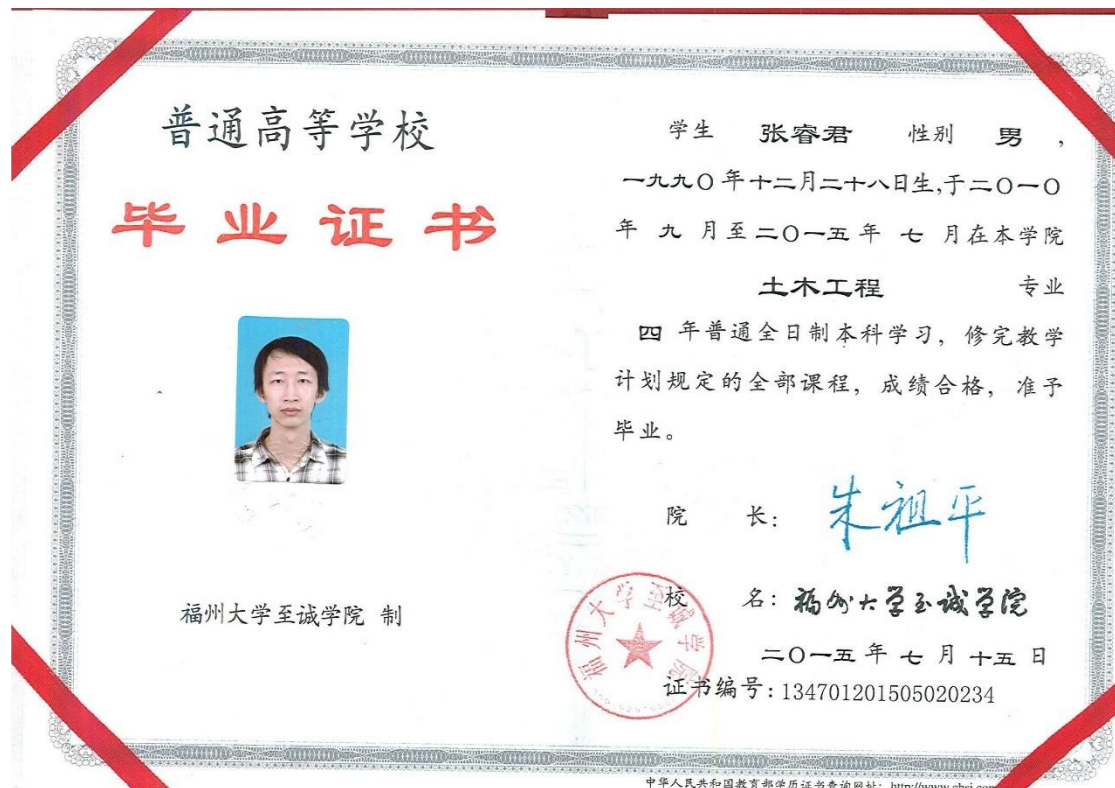 普通高等学校
毕业证书
福州大学至诚学院 制
学生 张睿君 性别 男，
一九九〇年十二月二十八日生,于二〇一〇
年 九 月至二〇一五年 七 月在本学院
土木工程 专业
四 年普通全日制本科学习，修完教学
计划规定的全部课程，成绩合格，准予
毕业。
院 长：朱祖平
校 名：福州大学至诚学院
福州大学至诚学院
二〇一五年 七 月 十五 日
证书编号：134701201505020234
中华人民共和国教育部学历证书查询网址：http://www.chsi.com